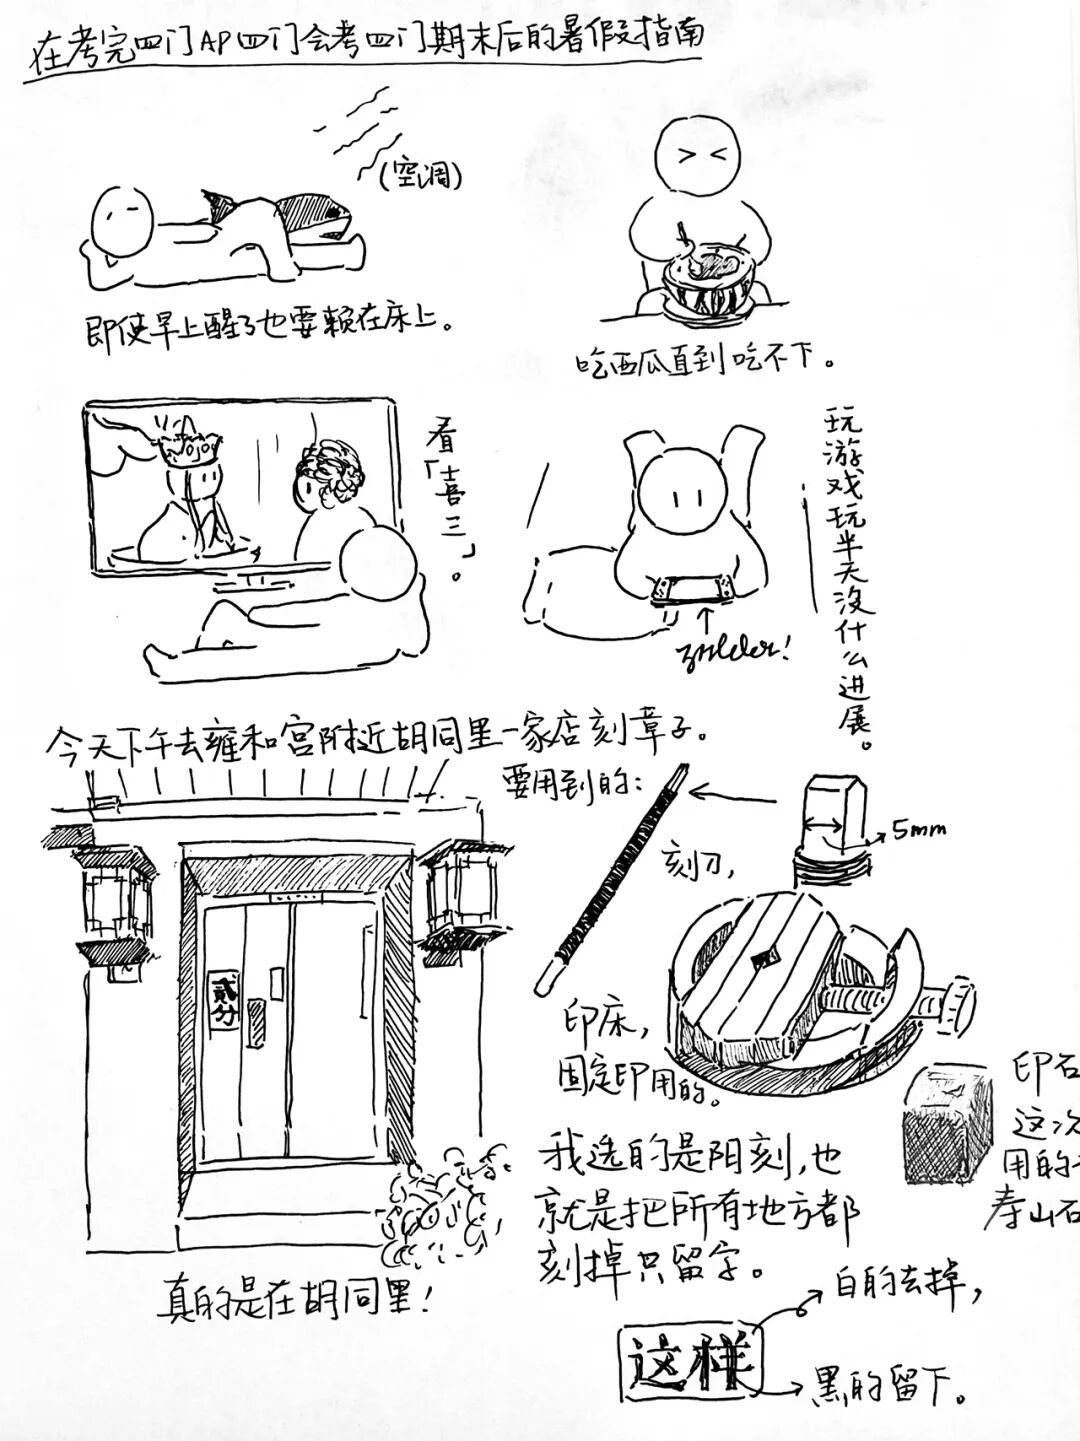 在考完四门AP四门会考四门期末后的暑假指南
(空调)
即使早上醒了也要赖在床上。
吃西瓜直到吃不下。
看「喜三」。
玩游戏玩半天没什么进展。
今天下午去雍和宫附近胡同里一家店刻章子。
要用到的:
5mm
刻刀,
贰分
印床,
固定印用的。
印石
这次
用的
寿山石
我选的是阳刻,也
就是把所有地方都
刻掉只留字。
真的是在胡同里!
白的去掉,
这样
黑的留下。